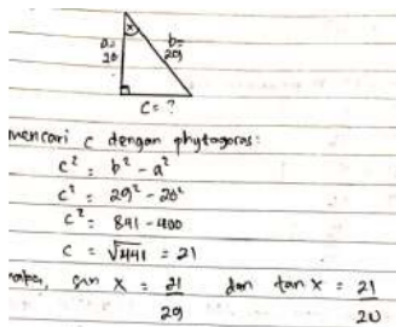 a = 20
x
b = 29
c = ?
mencari c dengan phytagoras:
c² = b² - a²
c² = 29² - 20²
c² = 841 - 400
c = √441 = 21
maka, sin x = 21/29 dan tan x = 21/20